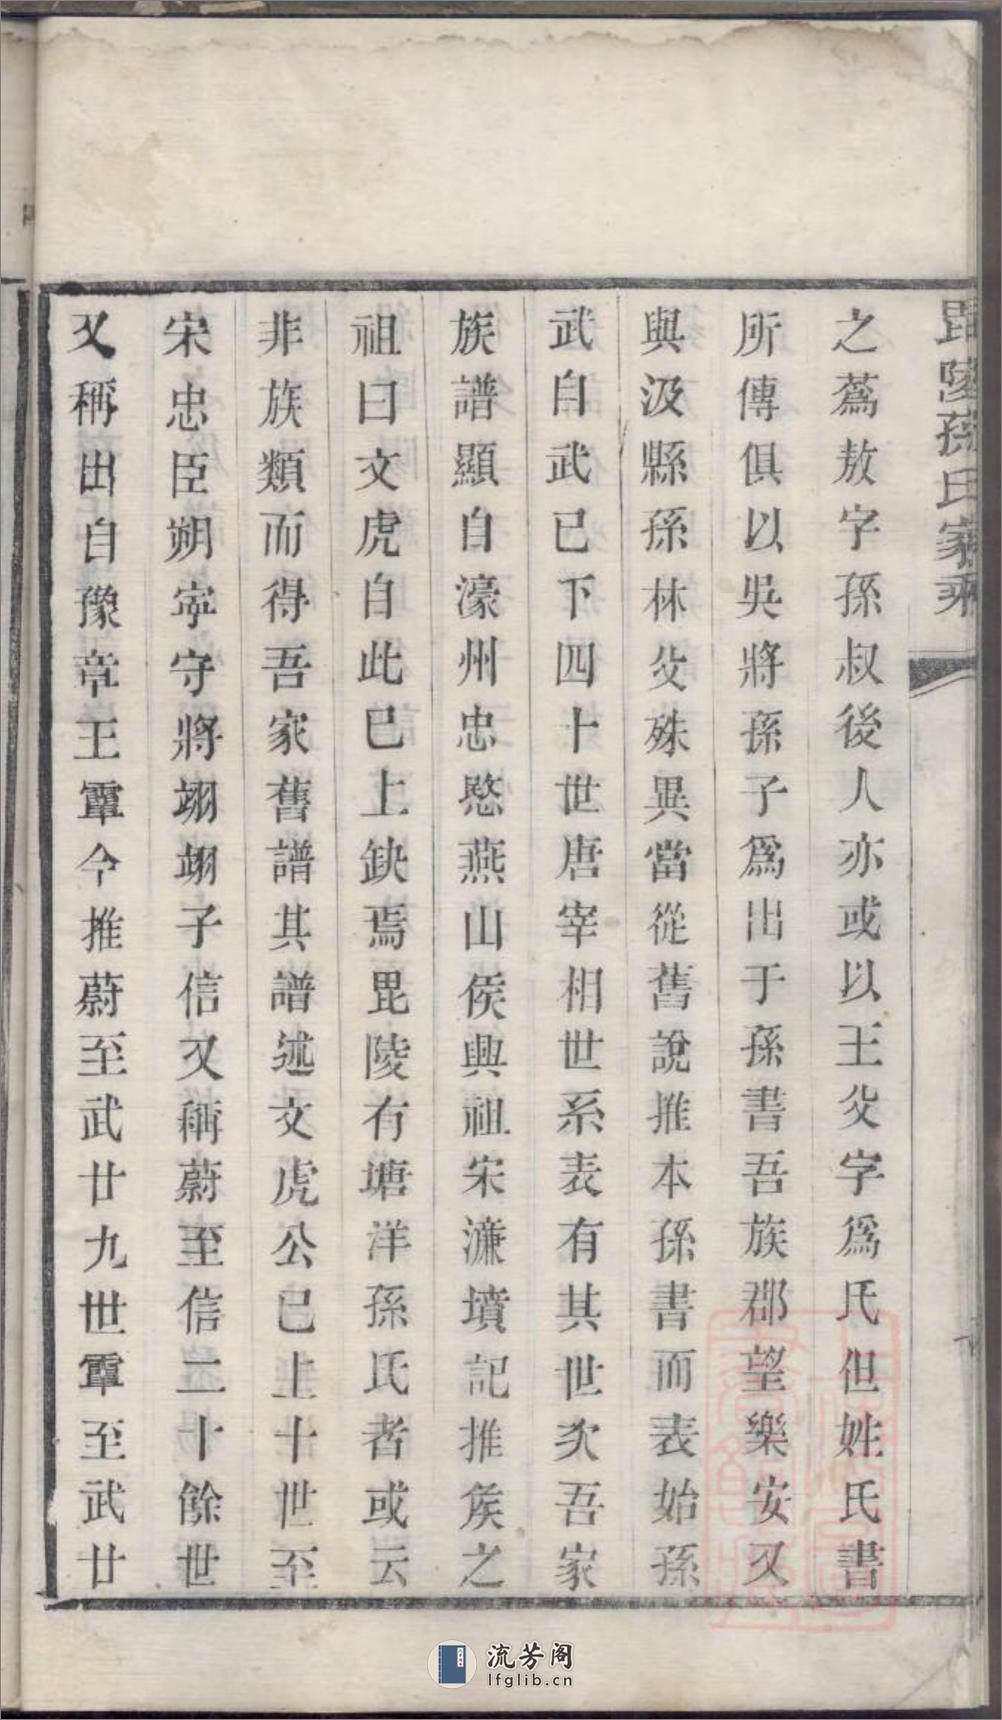 毘陵孫氏家乘
之蒍敖字孫叔後人亦或以王父字爲氏但姓氏書
所傳俱以吳將孫子爲出于孫書吾族郡望樂安又
與汲縣孫林父殊異當從舊說推本孫書而表始孫
武自武已下四十世唐宰相世系表有其世次吾家
族譜顯自濠州忠愍燕山侯興祖宋濂墳記推矦之
祖曰文虎自此已上缺焉毘陵有塘洋孫氏者或云
非族類而得吾家舊譜其譜述文虎公已上十世至
宋忠臣朔寕守將翊翊子信又稱蔚至信二十餘世
又稱出自豫章王䨥今推蔚至武廿九世䨥至武廿
流芳阁
lfglib.cn